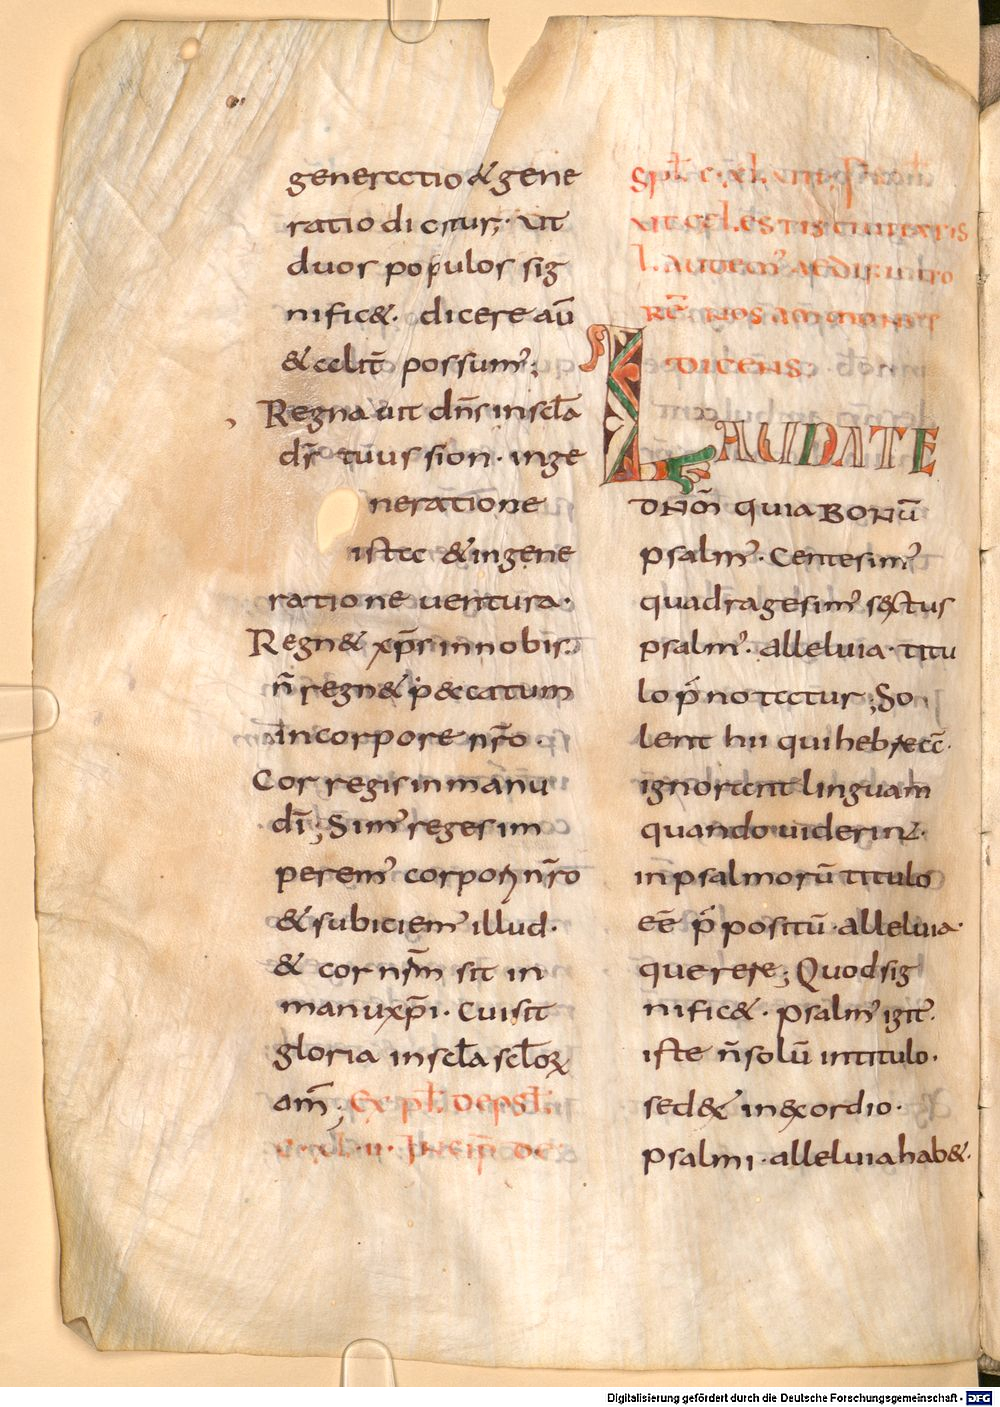 generatio & gene
ratio dicitur; ut
duos populos sig
nific&. dicere aū
& alit̄ possum᾿;
Regnauit dn̄s in scl̄a
dſ̄ tuus sion. inge
neratione
ista & in gene
ratione uentura.
Regn& xp̄s in nobis.
n̄ regn& p&catum
in corpore nr̄o.
Cor regis in manu
dī; Sim᾿ reges im
perem᾿ corporꝝ nr̄o
& subiciem᾿ illud.
& cor nr̄m sit in
manu xp̄i. Cui sit
gloria in scl̄a scl̄oꝝ
am̄; Expl̄ de psl̄
c. xl. ii. Incip̄ de
LAUDATE
DNM̄ QUIA BONŪ
psalm᾿. Centesim᾿
quadragesim᾿ sextus
psalm᾿. alleluia. titu
lo p̄notatur; So
lent hii qui hebreā
ignorant linguam
quando uiderint
in psalmorū titulo
eē p̄positū alleluia.
querere; Quod sig
nific&. psalm᾿ igit᾿.
iste n̄ solū in titulo.
sed & in exordio.
psalmi. alleluia hab&.
Digitalisierung gefördert durch die Deutsche Forschungsgemeinschaft - DFG